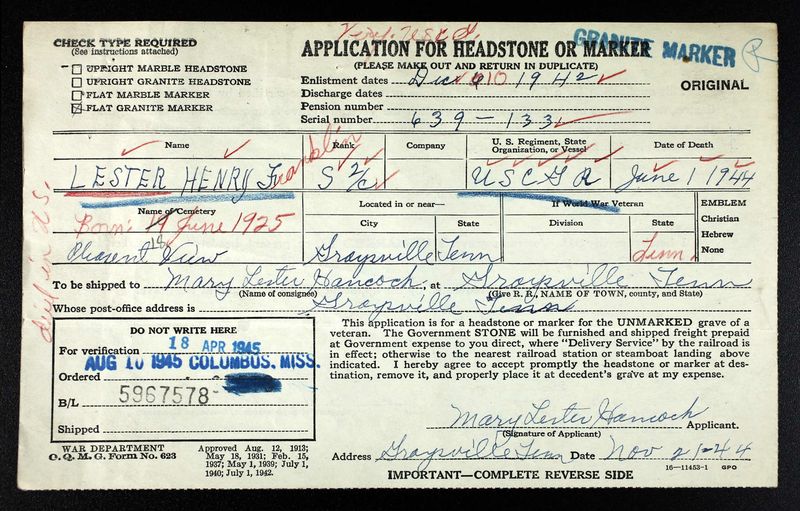 Verif. USCG.
CHECK TYPE REQUIRED
(See instructions attached)
UPRIGHT MARBLE HEADSTONE
UPRIGHT GRANITE HEADSTONE
FLAT MARBLE MARKER
FLAT GRANITE MARKER
APPLICATION FOR HEADSTONE OR MARKER
GRANITE MARKER
(PLEASE MAKE OUT AND RETURN IN DUPLICATE)
ORIGINAL
Enlistment dates Dec 10 1942
Discharge dates
Pension number
Serial number 639-133
Name
Rank
Company
U. S. Regiment, State Organization, or Vessel
Date of Death
LESTER HENRY Franklin
S 2/c
USCGR
June 1 1944
Name of Cemetery
Located in or near—
City
State
If World War Veteran
Division
State
EMBLEM
Christian
Hebrew
None
Born: 18 June 1925
Pleasent View
Graysville
Tenn
Tenn.
Died in US.
To be shipped to Mary Lester Hancock, at Graysville Tenn
(Name of consignee)
(Give R. R., NAME OF TOWN, county, and State)
Whose post-office address is Graysville Tenn
DO NOT WRITE HERE
For verification 18 APR 1945
AUG 10 1945 COLUMBUS, MISS.
Ordered
B/L 5967578-
Shipped
This application is for a headstone or marker for the UNMARKED grave of a
veteran. The Government STONE will be furnished and shipped freight prepaid
at Government expense to you direct, where "Delivery Service" by the railroad is
in effect; otherwise to the nearest railroad station or steamboat landing above
indicated. I hereby agree to accept promptly the headstone or marker at des-
tination, remove it, and properly place it at decedent's grave at my expense.
Mary Lester Hancock Applicant.
(Signature of Applicant)
WAR DEPARTMENT
O. Q. M. G. Form No. 623
Approved Aug. 12, 1913;
May 18, 1931; Feb. 15,
1937; May 1, 1939; July 1,
1940; July 1, 1942.
Address Graysville Tenn Date Nov 21-44
16—11453-1 GPO
IMPORTANT—COMPLETE REVERSE SIDE